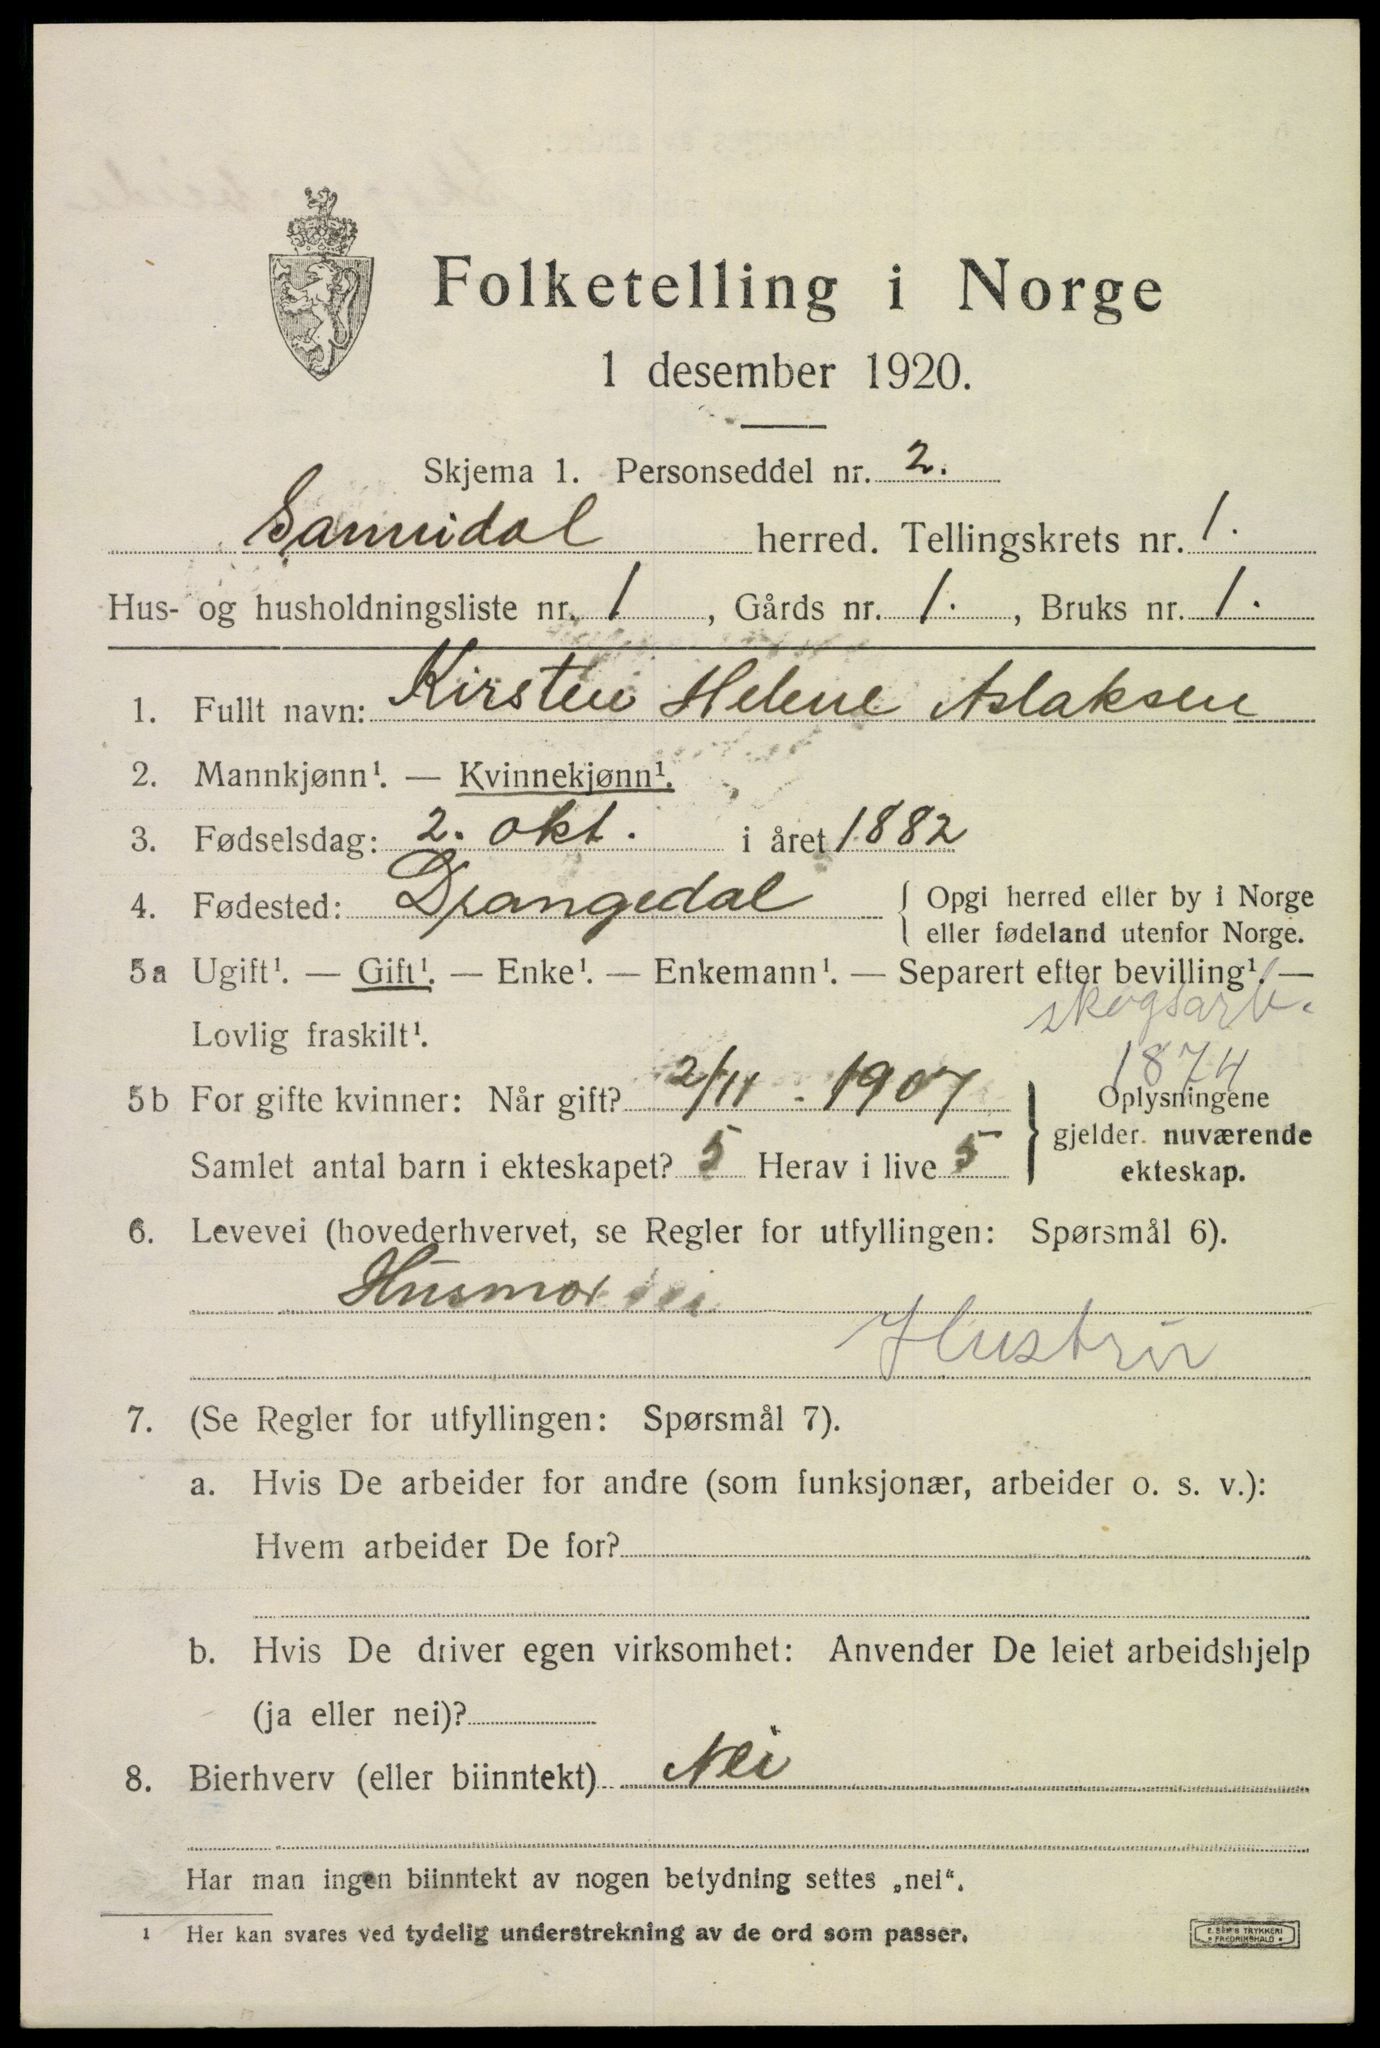 Folketelling i Norge
1 desember 1920.
Skjema 1. Personseddel nr. 2.
Sannidal herred. Tellingskrets nr. 1.
Hus- og husholdningsliste nr. 1, Gårds nr. 1., Bruks nr. 1.
1. Fullt navn: Kirsten Helene Aslaksen
2. Mannkjønn¹. — Kvinnekjønn¹.
3. Fødselsdag: 2. okt. i året 1882
4. Fødested: Drangedal { Opgi herred eller by i Norge
eller fødeland utenfor Norge.
5a Ugift¹. — Gift¹. — Enke¹. — Enkemann¹. — Separert efter bevilling¹. —
skogsarb.
Lovlig fraskilt¹.
1874
5b For gifte kvinner: Når gift? 2/11 - 1907 } Oplysningene
gjelder nuværende
Samlet antal barn i ekteskapet? 5 Herav i live 5
ekteskap.
6. Levevei (hovederhvervet, se Regler for utfyllingen: Spørsmål 6).
Husmor
Hustru
7. (Se Regler for utfyllingen: Spørsmål 7).
a. Hvis De arbeider for andre (som funksjonær, arbeider o. s. v.):
Hvem arbeider De for?
b. Hvis De driver egen virksomhet: Anvender De leiet arbeidshjelp
(ja eller nei)?
8. Bierhverv (eller biinntekt) Nei
Har man ingen biinntekt av nogen betydning settes „nei“.
¹ Her kan svares ved tydelig understrekning av de ord som passer.
E. SEM'S TRYKKERI
FREDRIKSHALD